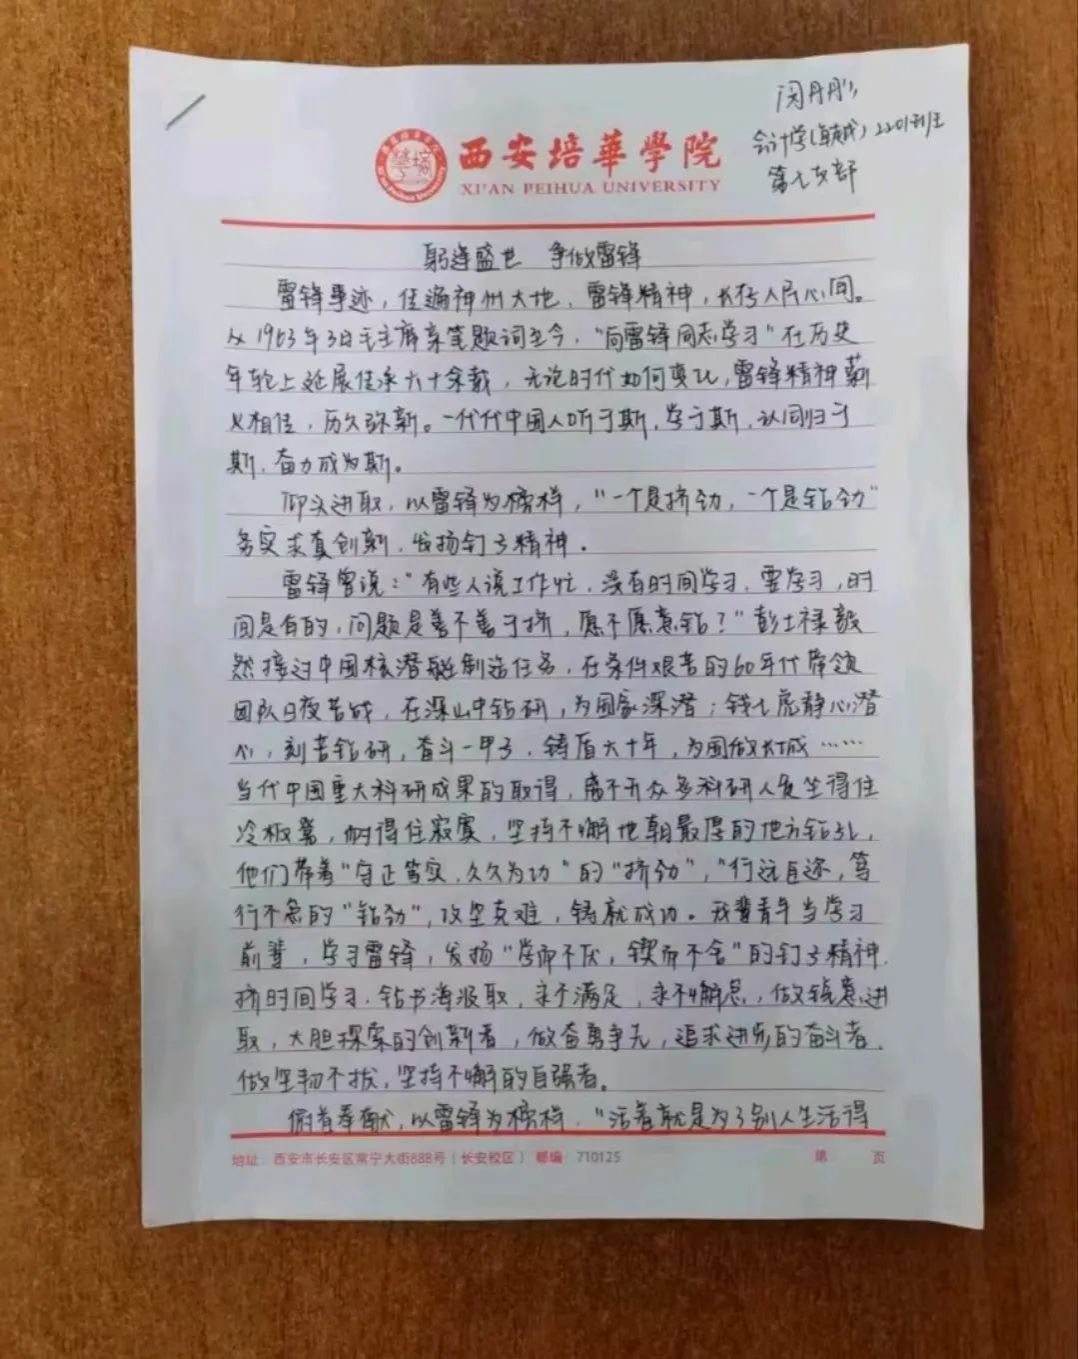 闵丹彤
会计学(卓越)2201班
第七支部
西安培華學院
XI'AN PEIHUA UNIVERSITY
躬逢盛世 争做雷锋
雷锋事迹，传遍神州大地，雷锋精神，长存人民心间。
从1963年3月毛主席亲笔题词至今，"向雷锋同志学习"在历史
年轮上延展传承六十余载，无论时代如何变化，雷锋精神薪
火相传，历久弥新。一代代中国人听于斯，学于斯，认同归于
斯，奋力成为斯。
仰头进取，以雷锋为榜样，"一个是挤劲，一个是钻劲"
务实求真创新，发扬钉子精神。
雷锋曾说："有些人说工作忙，没有时间学习，要学习，时
间是有的，问题是善不善于挤，愿不愿意钻？"彭士禄毅
然接过中国核潜艇制造任务，在条件艰苦的60年代带领
团队日夜苦战，在深山中钻研，为国家深潜；钱七虎静心潜
心，刻苦钻研，奋斗一甲子，铸盾六十年，为国做长城……
当代中国重大科研成果的取得，离不开众多科研人员坐得住
冷板凳，耐得住寂寞，坚持不懈地朝最厚的地方钻孔，
他们带着"守正笃实，久久为功"的"挤劲"，"行远自迩，笃
行不怠的"钻劲"，攻坚克难，铸就成功。我辈青年当学习
前辈，学习雷锋，发扬"学而不厌，锲而不舍"的钉子精神，
挤时间学习，钻书海汲取，永不满足，永不懈怠，做锐意进
取，大胆探索的创新者，做奋勇争先，追求进步的奋斗者，
做坚韧不拔，坚持不懈的自强者。
俯首奉献，以雷锋为榜样，"活着就是为了别人生活得
地址：西安市长安区常宁大街888号（长安校区） 邮编：710125 第 页